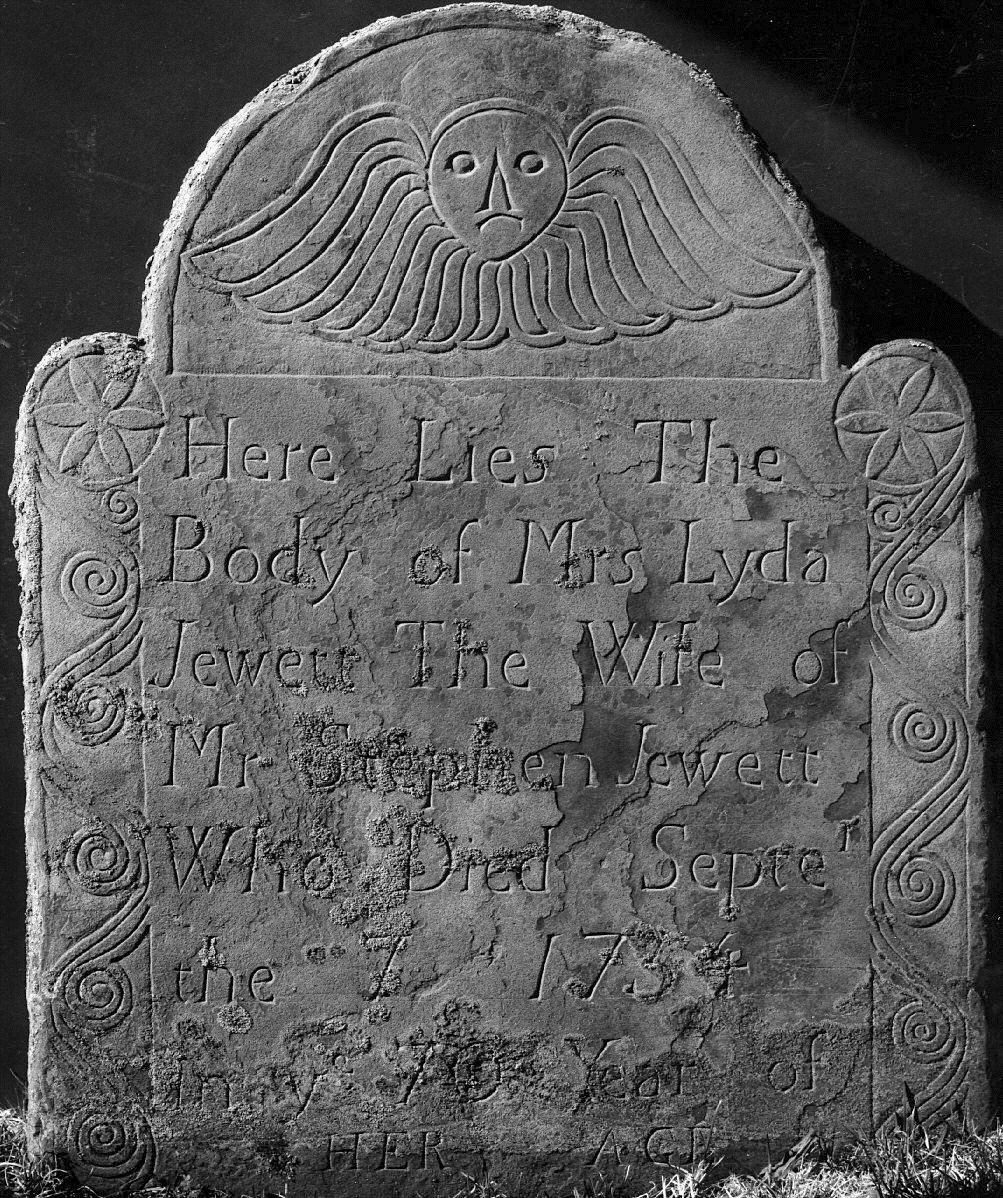 Here Lies The
Body of Mrs Lyda
Jewett The Wife of
Mr Stephen Jewett
Who Died Septeʳ
the 7 1754
In yᵉ 70 Year of
HER AGE